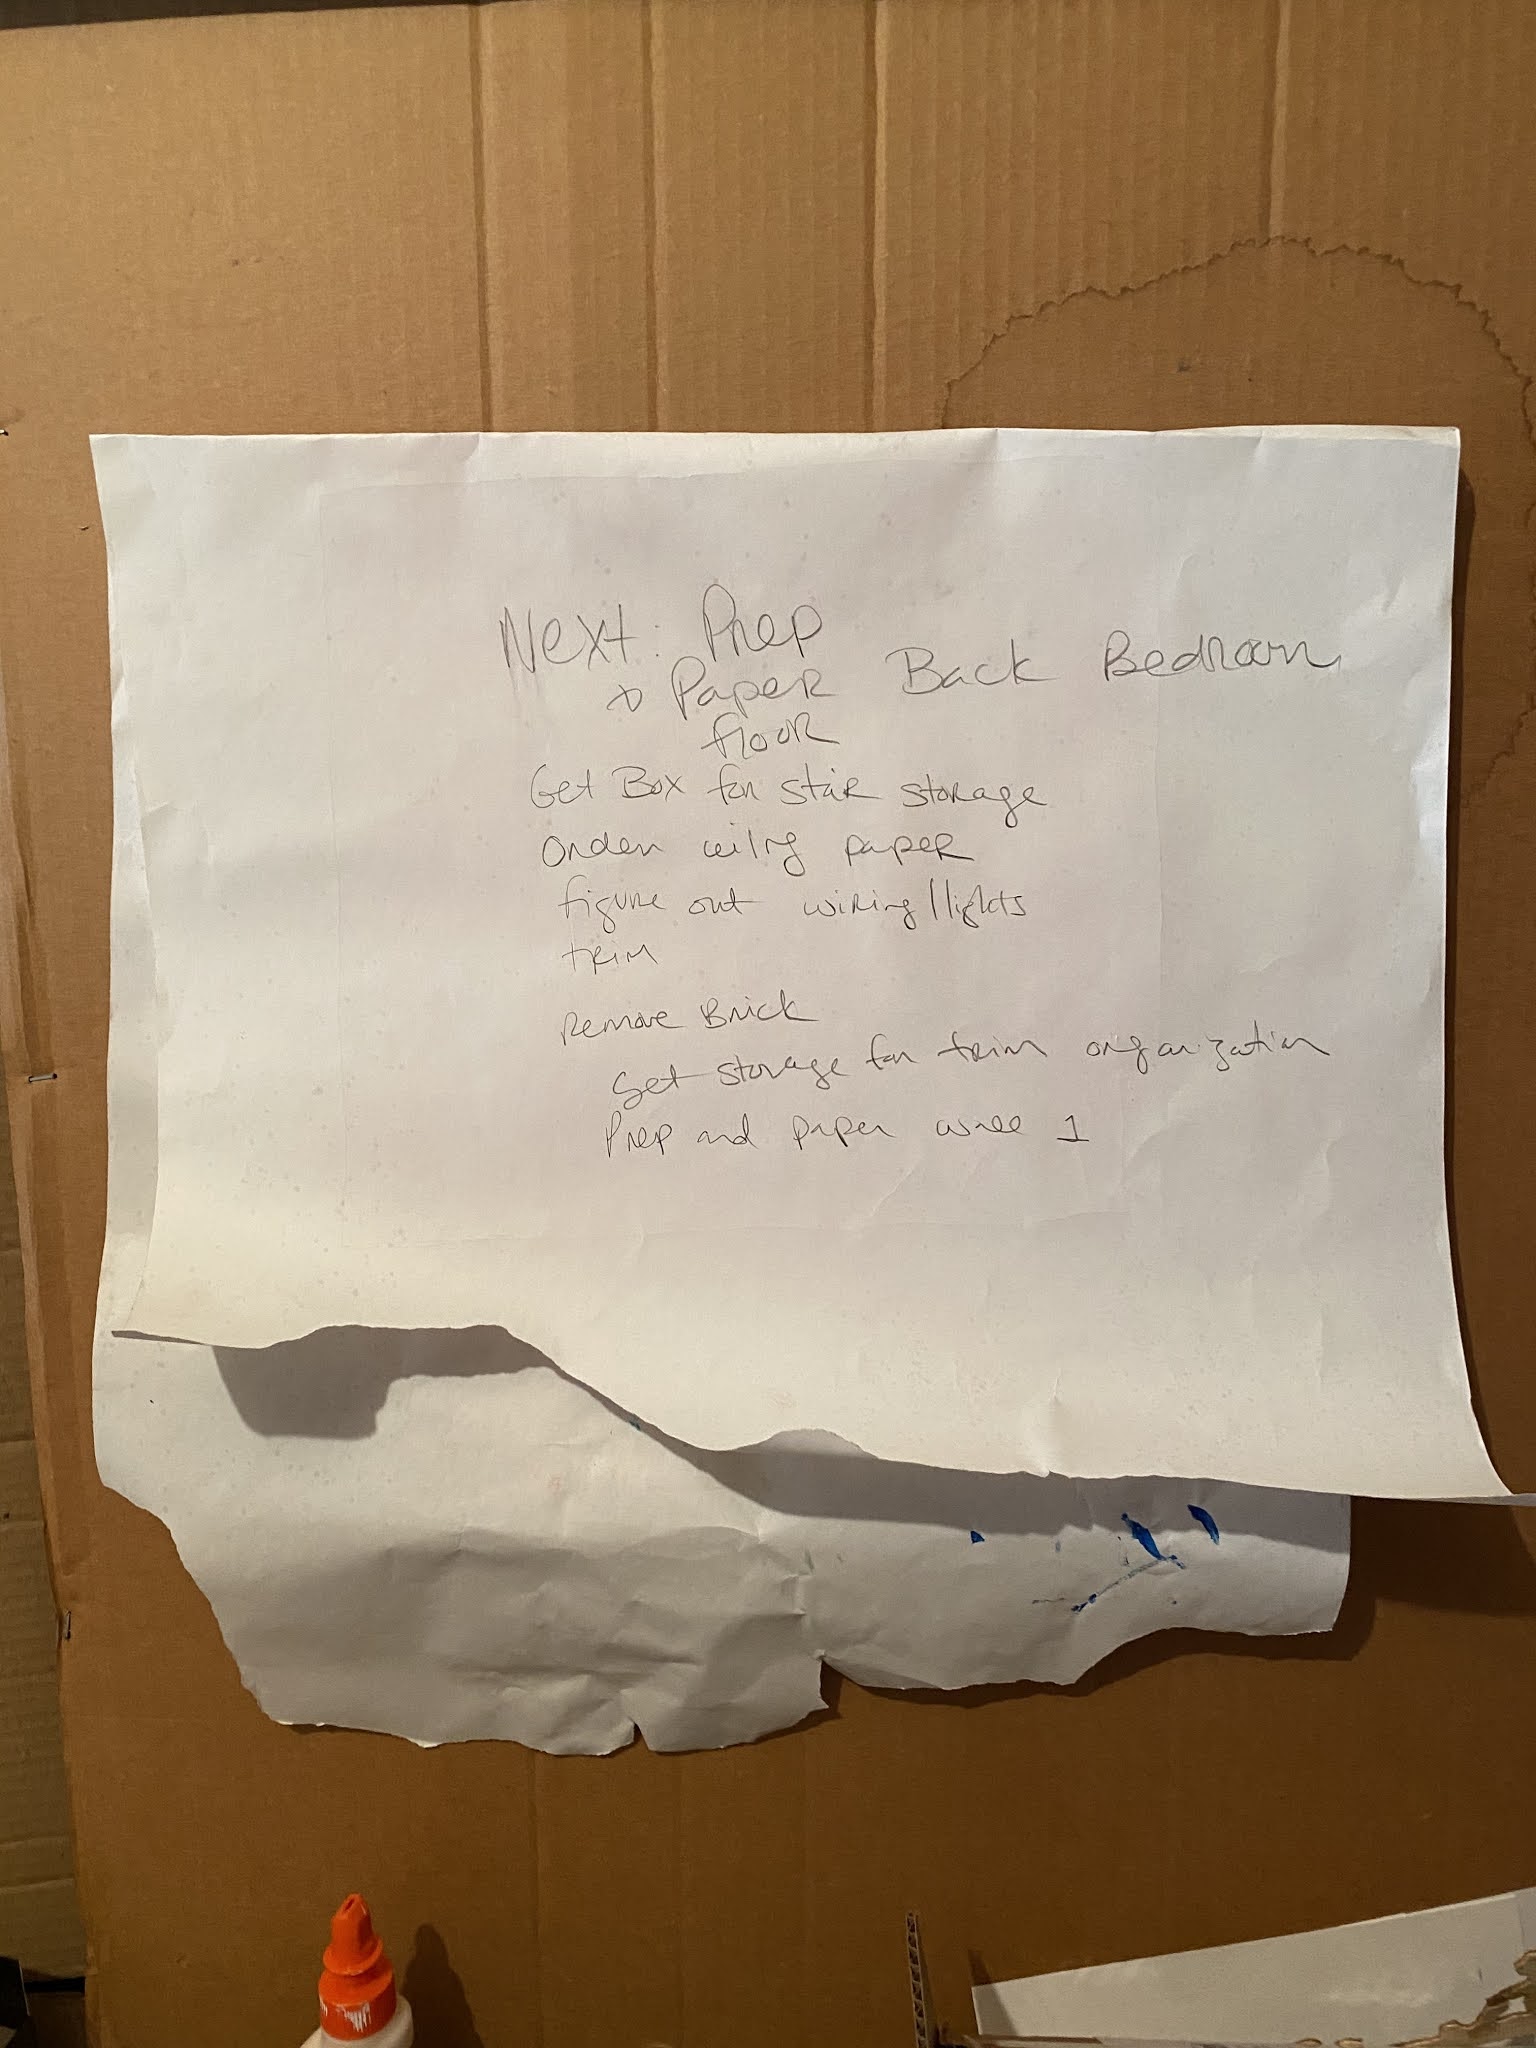 Next: Prep
+ Paper Back Bedroom
floor
Get Box for stair storage
Order ceiling paper
figure out wiring/lights
trim
Remove Brick
Get storage for trim organization
Prep and paper wall 1